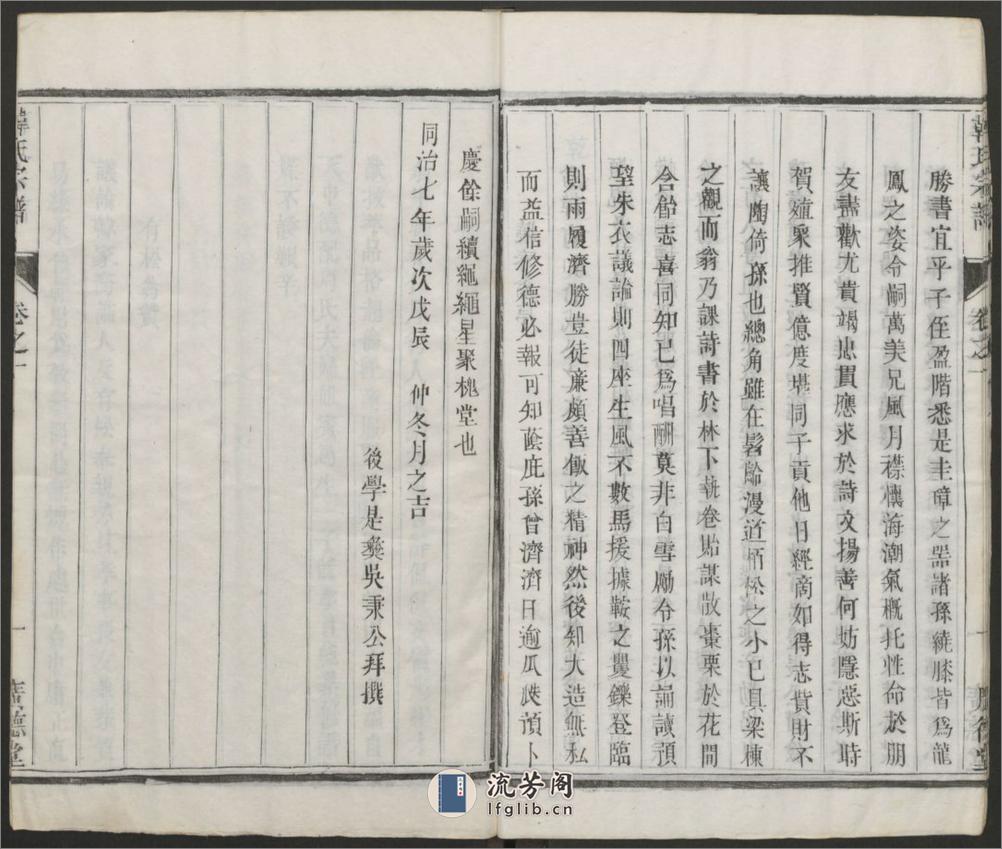 韓氏宗譜
卷之一
勝書宜乎子侄盈階悉是圭璋之器諸孫繞膝皆為龍
鳳之姿令嗣萬美兄風月襟懷海潮氣概托性命於朋
友盡歡尤貴竭忠貫應求於詩文揚善何妨隱惡斯時
賀殖衆推賢億度堪同子貢他日經商如得志貲財不
讓陶倚孫也總角雖在髫齡漫道栢松之小已具梁棟
之觀而翁乃課詩書於林下執卷貽謀散棗栗於花間
含飴志喜同知已為唱酬莫非白雪勵令孫以誦讀預
望朱衣議論則四座生風不數馬援據鞍之矍鑠登臨
則雨履濟勝豈徒廉頗善飯之精神然後知大造無私
而益信修德必報可知蔭庇孫曾濟濟日逾瓜瓞預卜
慶餘嗣續繩繩星聚槐堂也
同治七年歲次戊辰 仲冬月之吉
後學是彝吳秉公拜撰
韓氏宗譜
卷之一
一
流芳阁
lfglib.cn